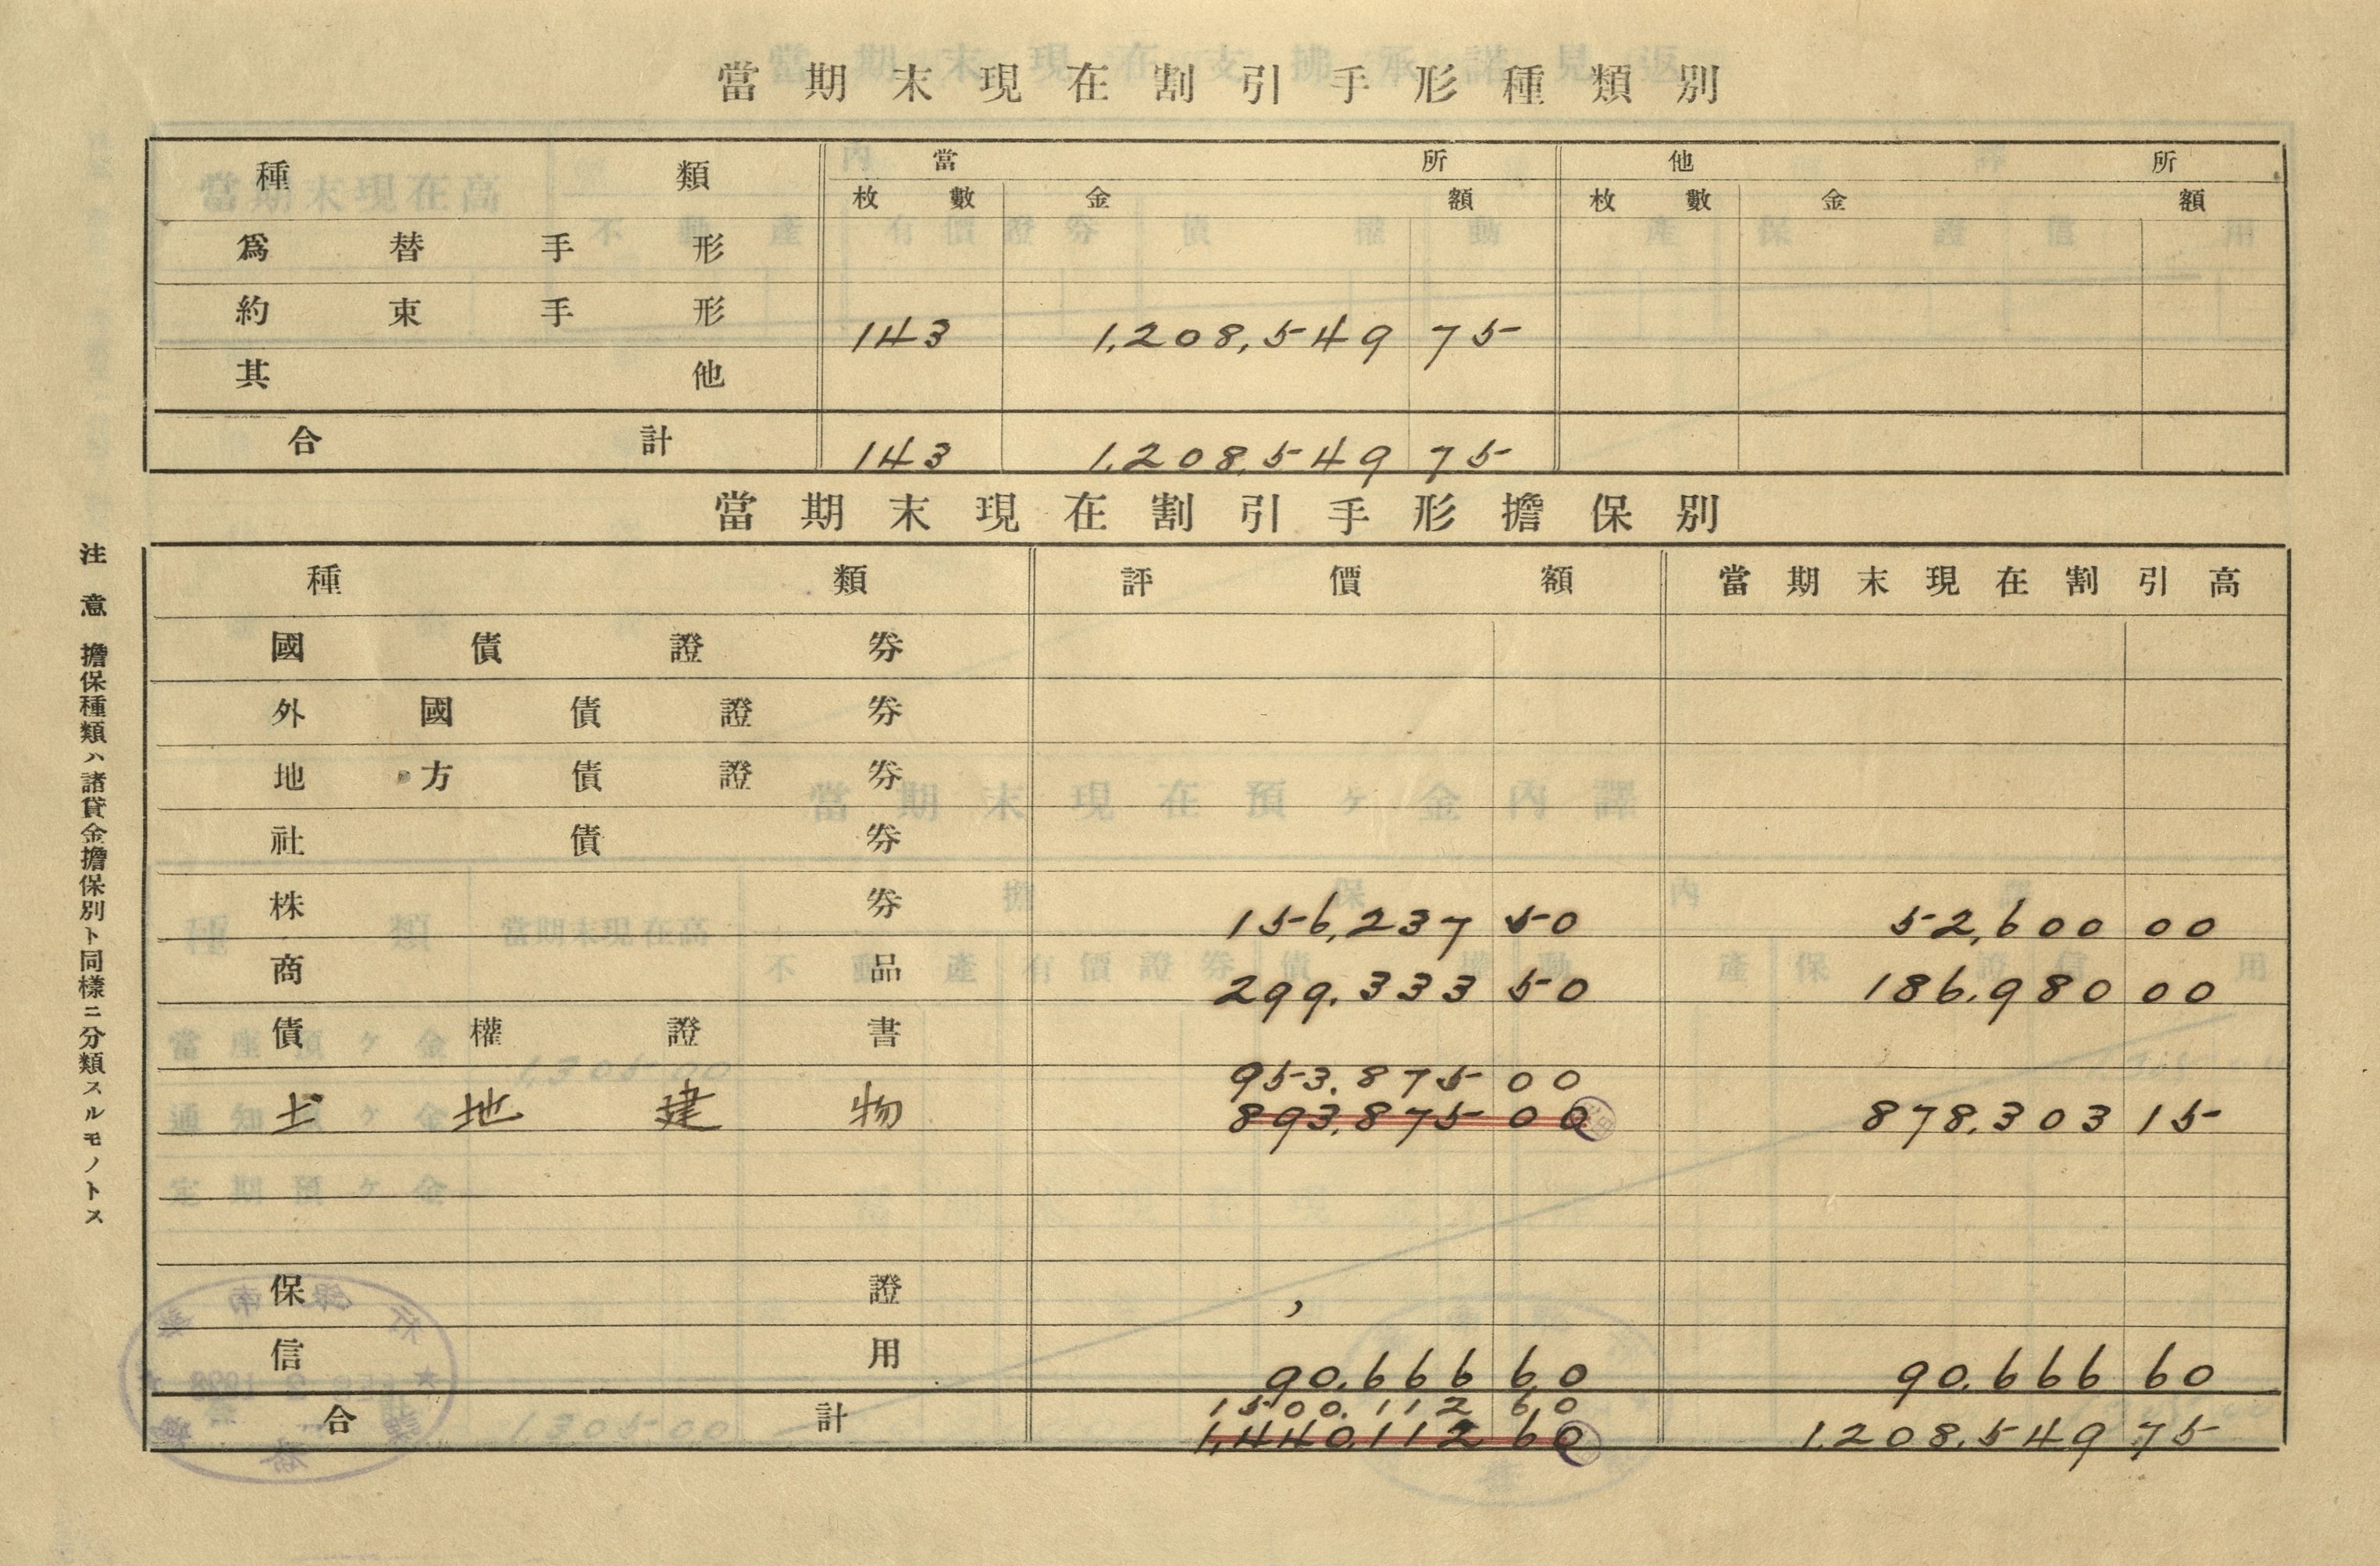 當期末現在割引手形種類別
種類 當所 他所
枚數 金額 枚數 金額
爲替手形
約束手形 143 1,208,549 75
其他
合計 143 1,208,549 75
當期末現在割引手形擔保別
種類 評價額 當期末現在割引高
國債證券
外國債證券
地方債證券
社債券
株券 156,237 50 52,600 00
商品 299,333 50 186,980 00
債權證書
953,875 00
土地建物 893,875 00 878,303 15
保證
信用 90,666 60 90,666 60
1500,112 60
合計 1,440,112 60 1,208,549 75
注意 擔保種類ハ諸貸金擔保別ト同樣ニ分類スルモノトス